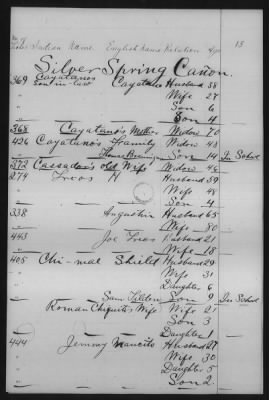 No of
Ticket Indian Name English Name Relation Age 15
Silver Spring Cañon.
369 Cayatanos
son in law Cayatano Husband 38
" Wife 27
" Son 6
" Son 4
368 Cayatano's Mother Widow 70
426 Cayatano's Family Widow 43
" Son 14 In School
272 Cassador's old Wife Widow 45
274 H Husband 59
" Wife 48
" Son 4
338 Augustin Husband 65
" Wife 80
443 Joe Husband 21
" Wife 18
405 Chi-mal Shield Husband 29
" Wife 31
" Daughter 6
" Sam Tilden Son 9 In School
Roman Chiquito's Wife Wife 21
" Son 3
" Daughter 1
444 Jimmy Mancito Husband 27
" Wife 30
" Daughter 5
" Son 2